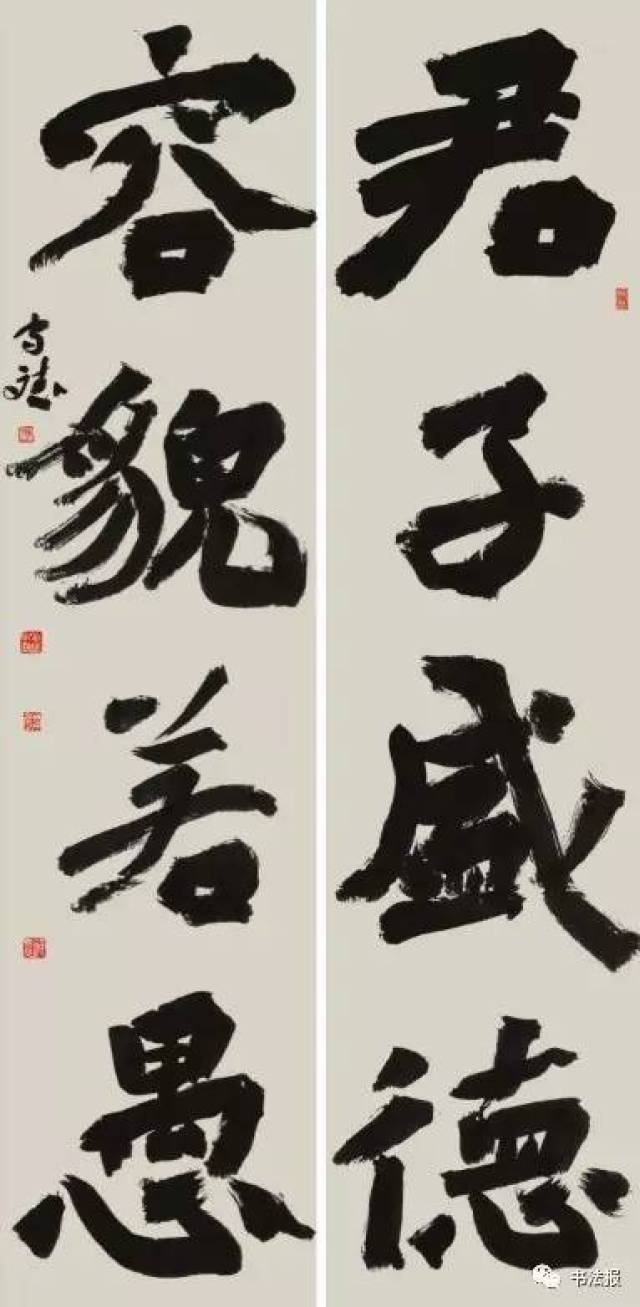 君子盛德
容貌若愚
书法报